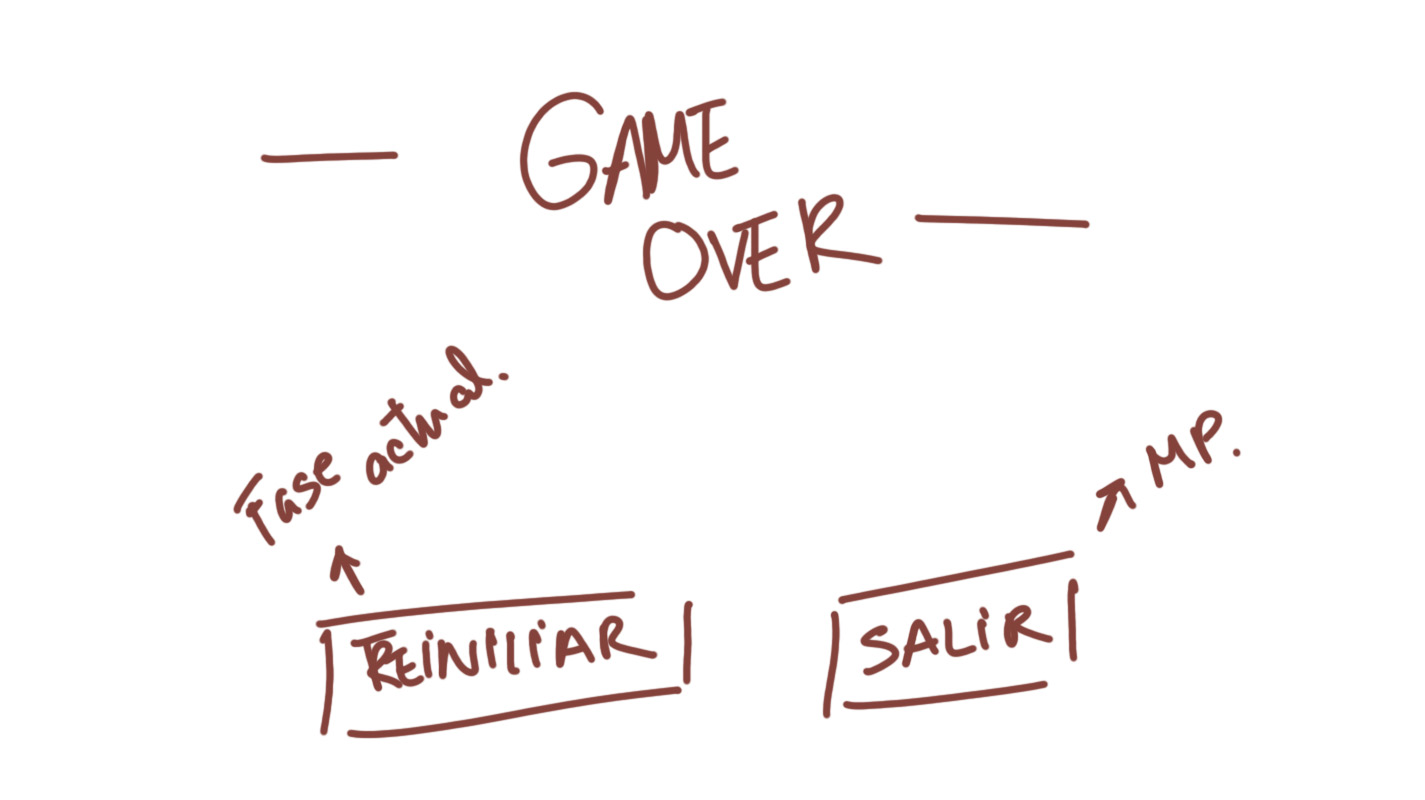 GAME
OVER
Fase actual.
MP.
REINICIAR
SALIR